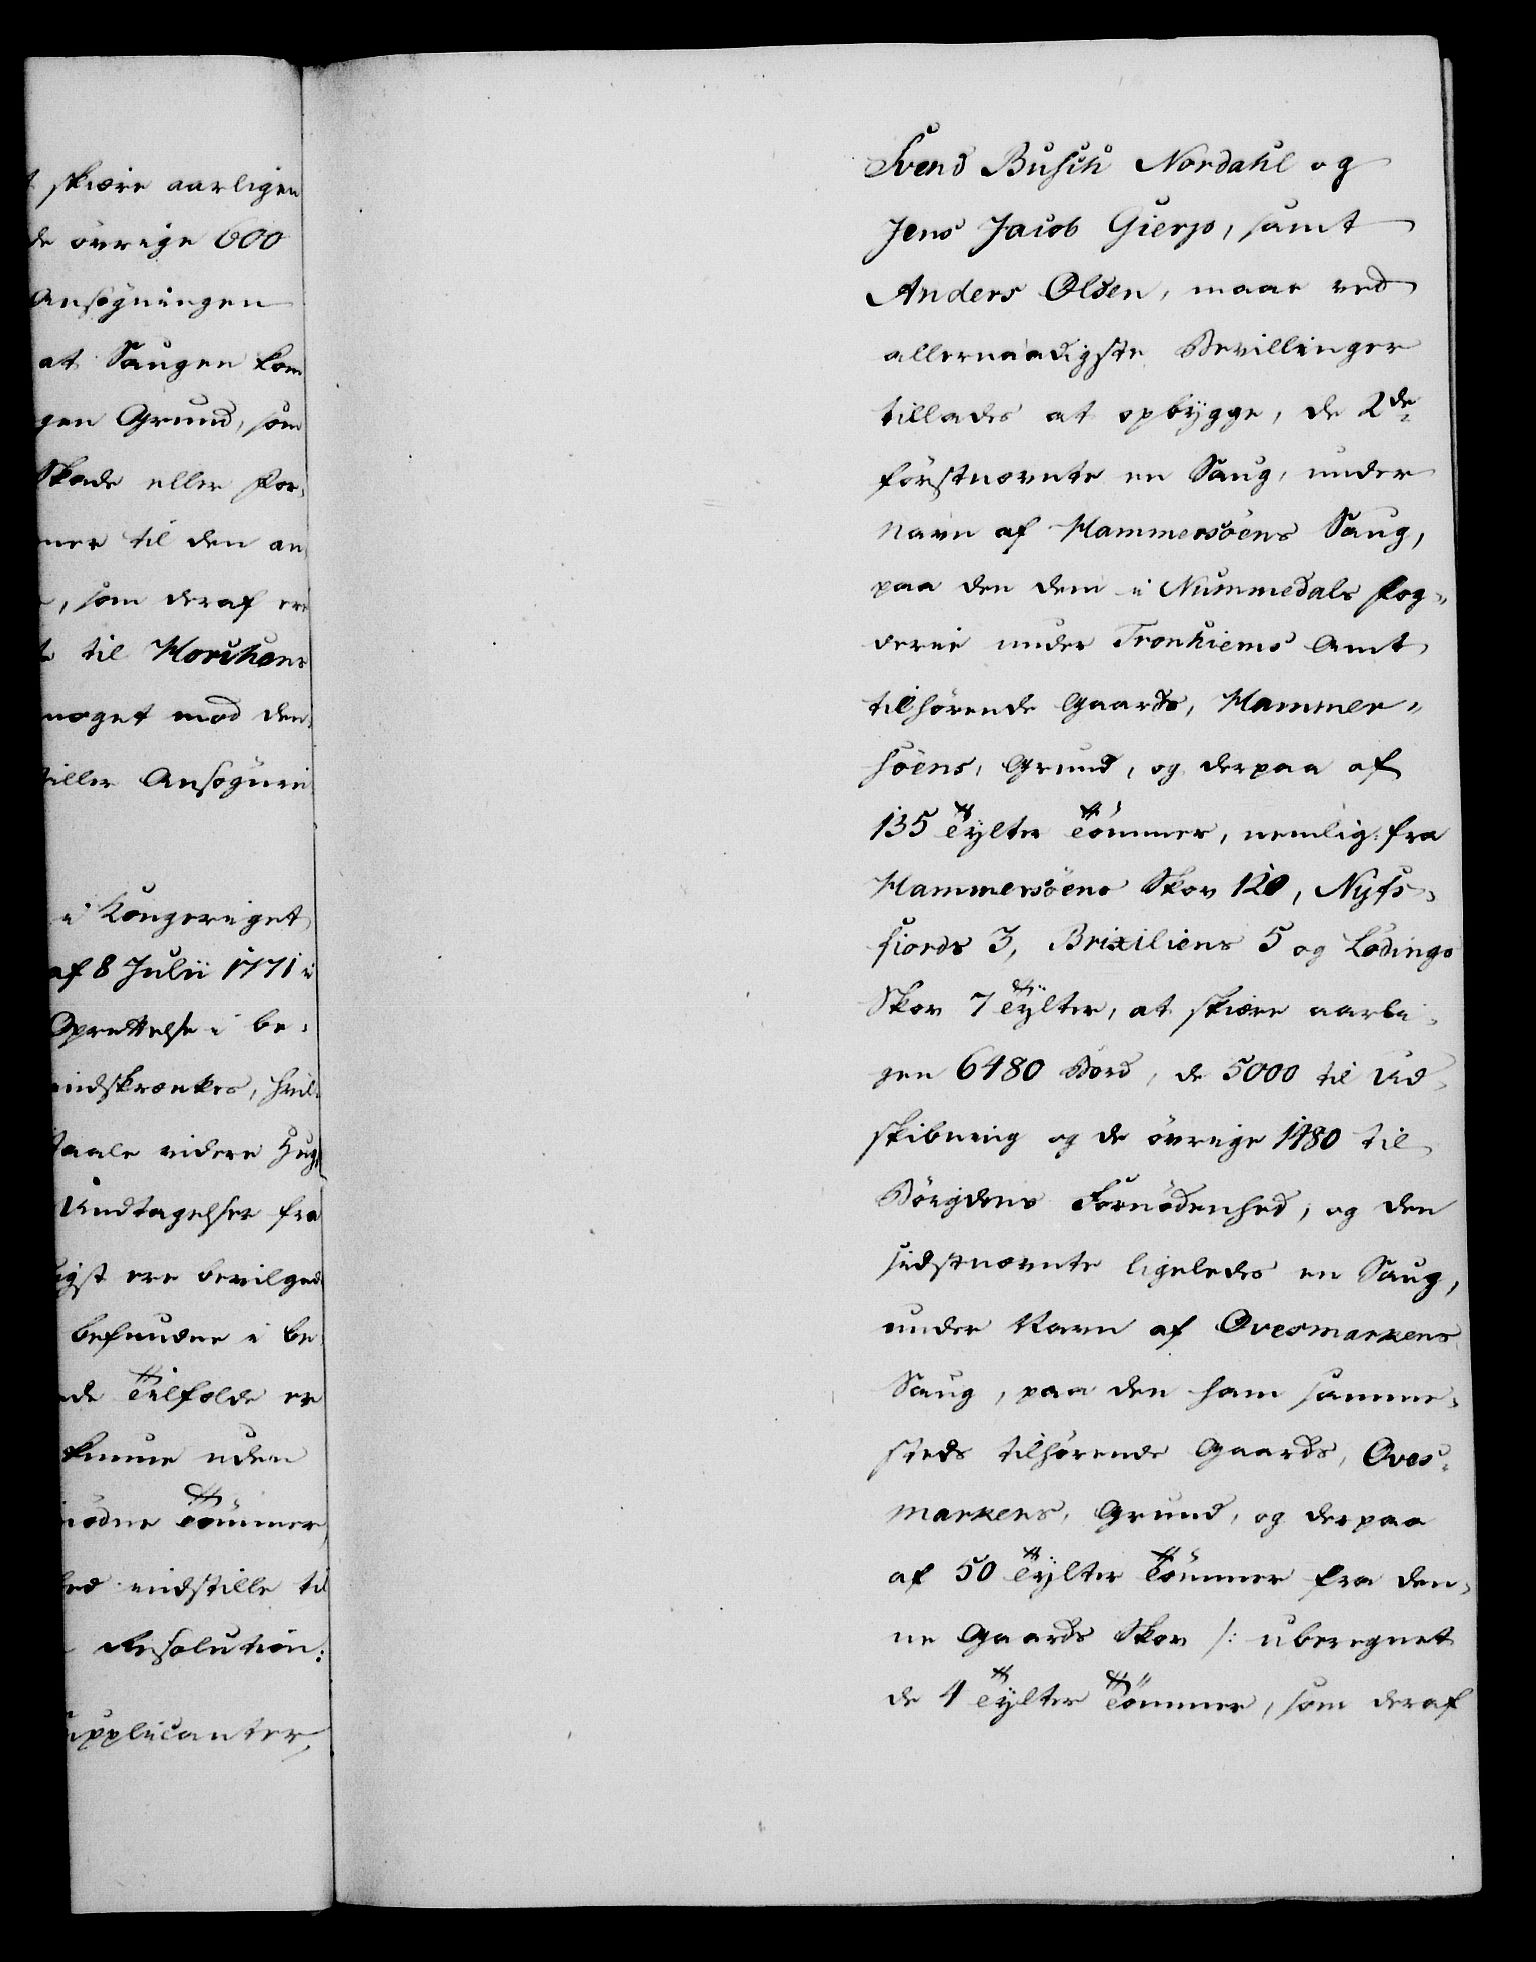 skiære aarligen
de övrige 600
Ansögningen
at Saugen kom
gen Grund, som
Skade eller for¬
mer til den an
, som deraf ere
til Horshens
noget mod den
tiller Ansögnin
i Kongeriget
af 8 Julii 1771 i
Oprettelse i be¬
indskrænkes, hvil¬
taale videre Hug
Undtagelser fra
igst ere bevilgede
befundne i be¬
de Tilfælde er
kunne uden
nödne Tömmer
hed indstille til
Resolution:
upplicanter,
Svend Busch Nordahl og
Jens Jacob Gierp, samt
Anders Olsen, maae ved
allernaadigste Bevillinger
tillades at opbÿgge, de 2de
förstnævnte en Saug, under
Navn af Hammersöens Saug,
paa den dem i Nummedals Fog¬
derie under Tronhiems Amt
tilhörende Gaards, Hammer¬
söens, Grund, og derpaa af
135 Tÿlter Tömmer, nemlig: fra
Hammersöens Skov 120, Nyfs¬
fiords 3, Brixiliens 5 og Lödings
Skov 7 Tÿlter, at skiære aarli¬
gen 6480 Bord, de 5000 til Ud¬
skibning og de övrige 1480 til
Böigdens Fornödenhed, og den
sidstnævnte ligeledes en Saug,
under Navn af Ovesmarkens
Saug, paa den ham samme¬
steds tilhörende Gaards, Oves¬
markens, Grund, og derpaa
af 50 Tÿlter Tömmer fra den¬
ne Gaards Skov /: uberegnet
de 4 Tÿlter Tömmer, som deraf